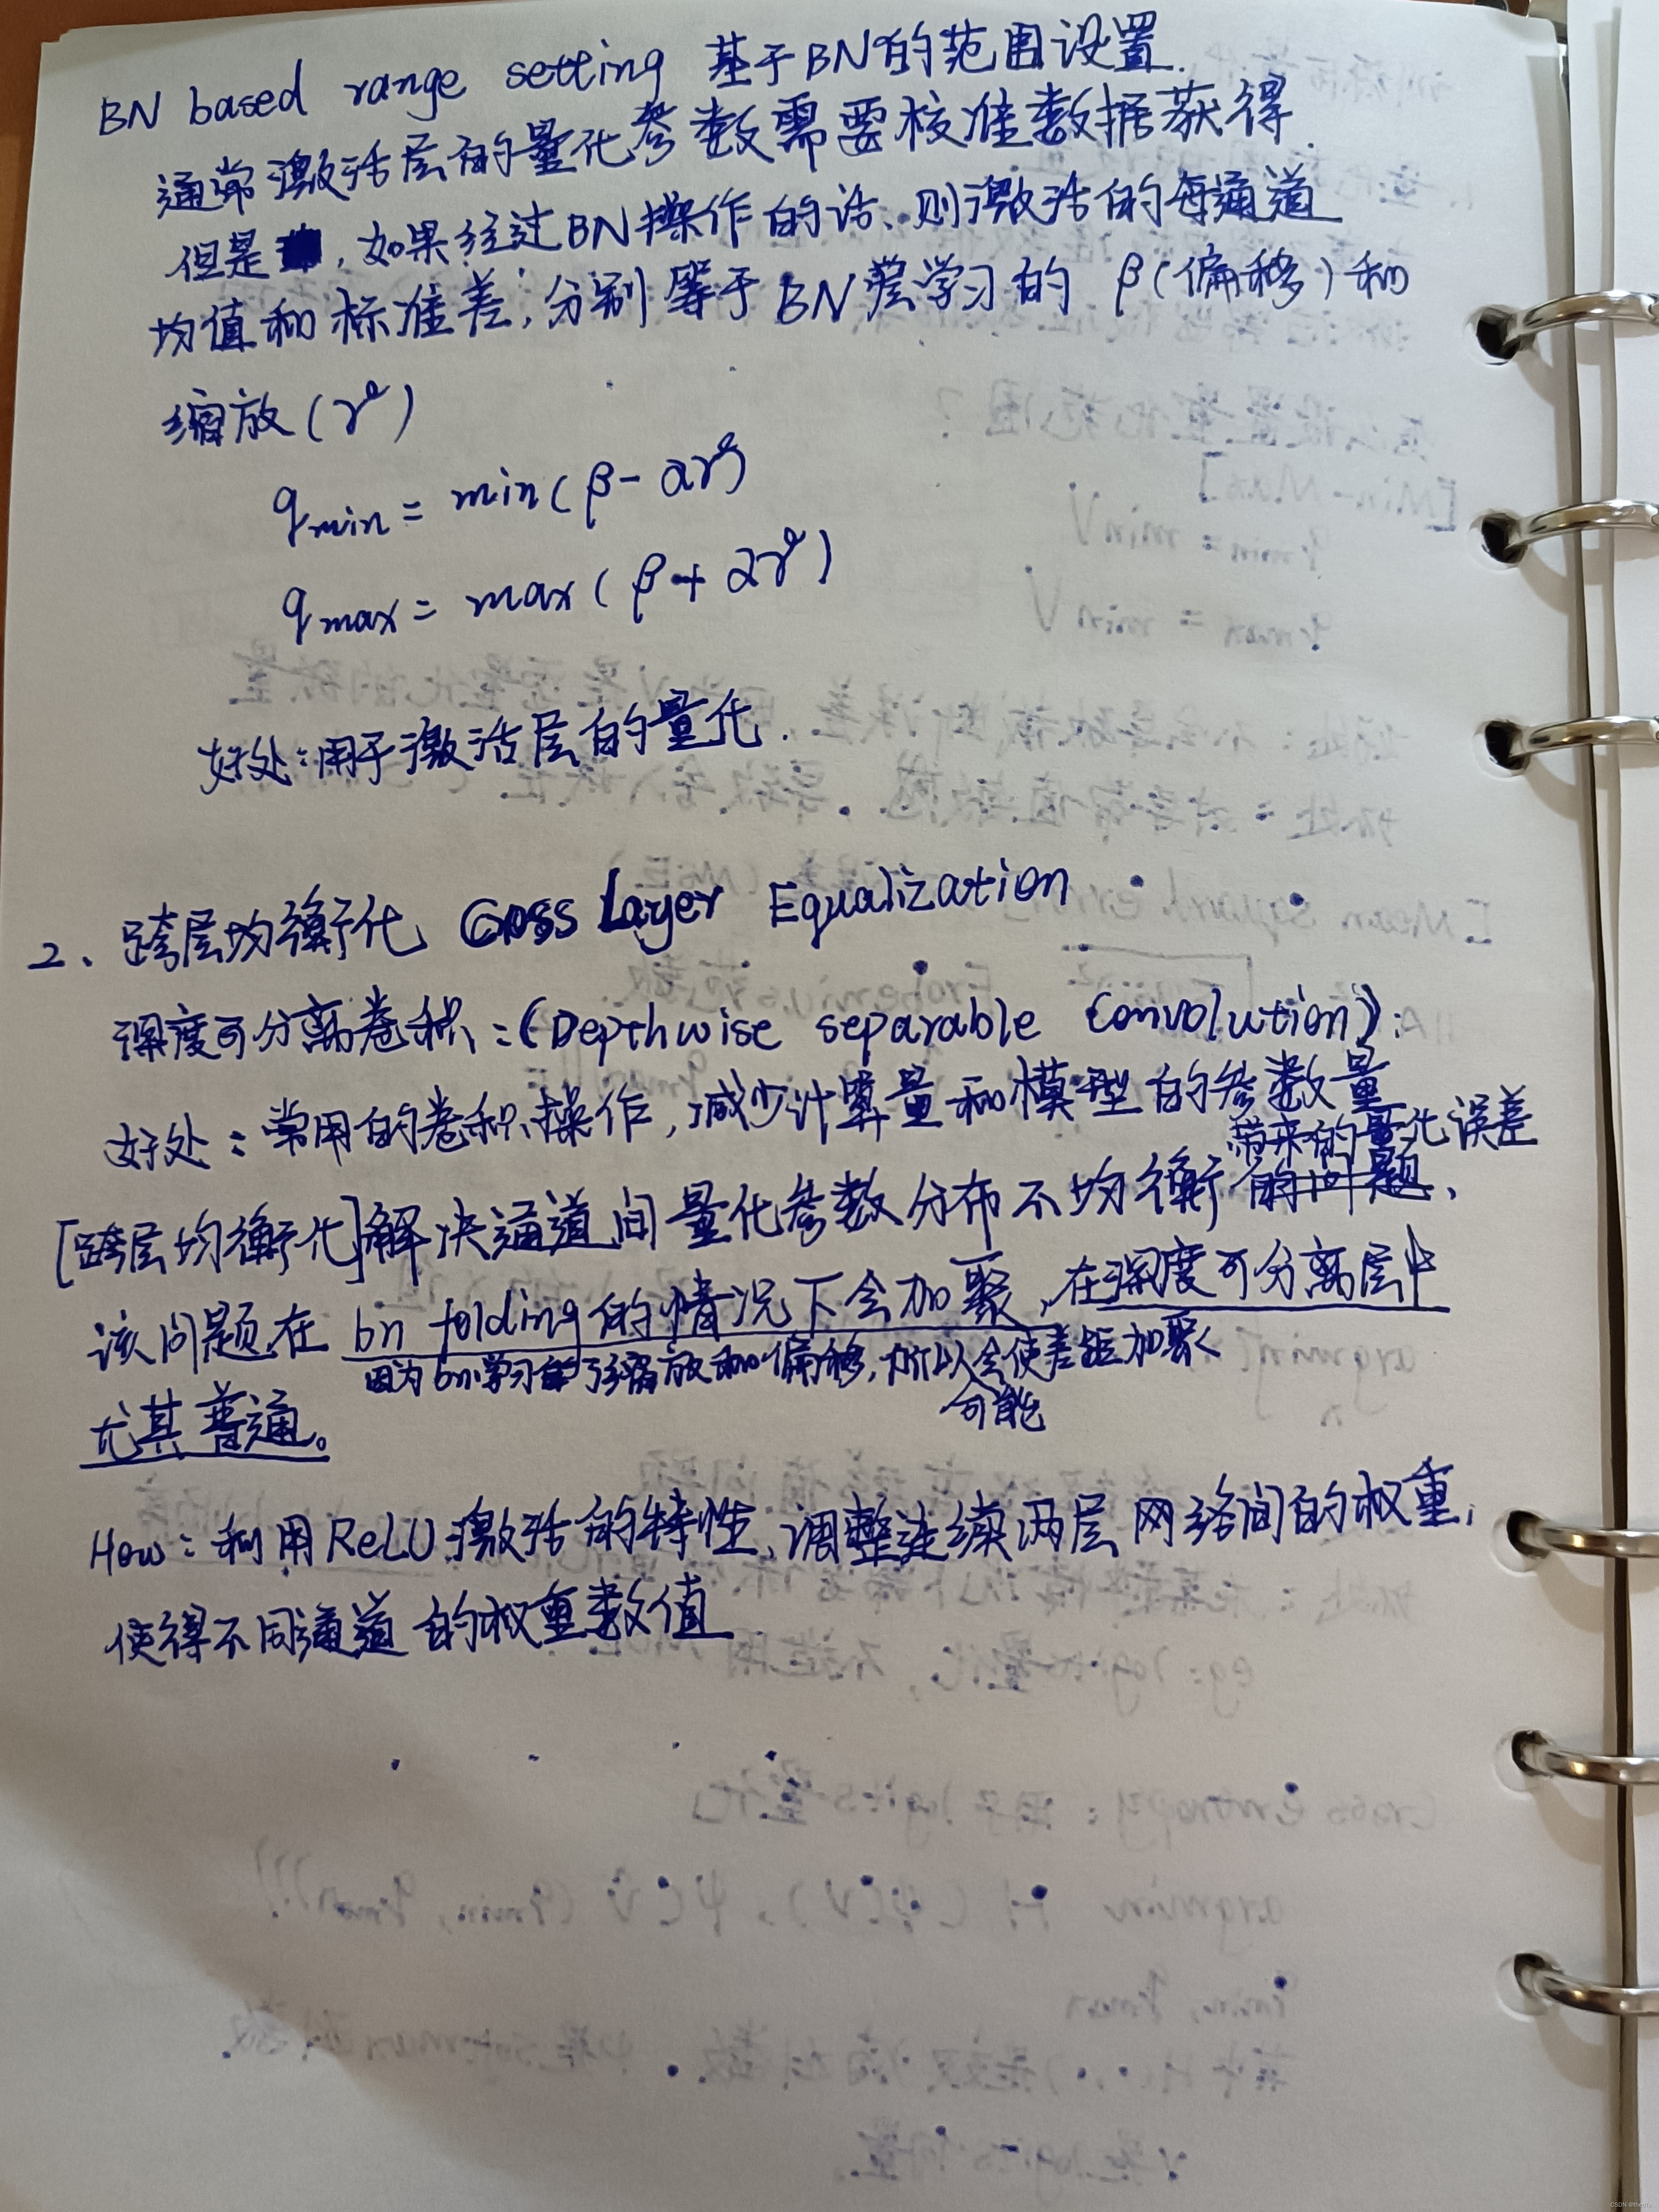 BN based range setting 基于BN的范围设置.
通常激活层的量化参数需要校准数据获得.
但是，如果经过BN操作的话、则激活的每通道
均值和标准差，分别等于BN层学习的 β(偏移)和
缩放(γ)
qmin = min(β-αγ)
qmax = max(β+αγ)
好处：用于激活层的量化.
2、跨层均衡化 Cross Layer Equalization
深度可分离卷积：(Depthwise separable Convolution)：
好处：常用的卷积操作，减少计算量和模型的参数量
带来的量化误差
[跨层均衡化]解决通道间量化参数分布不均衡的问题、
该问题在 bn folding的情况下会加聚、在深度可分离层中
因为bn学习了缩放和偏移，所以会使差距加聚
可能
尤其普通。
How：利用ReLU激活的特性，调整连续两层网络间的权重，
使得不同通道的权重数值
CSDN